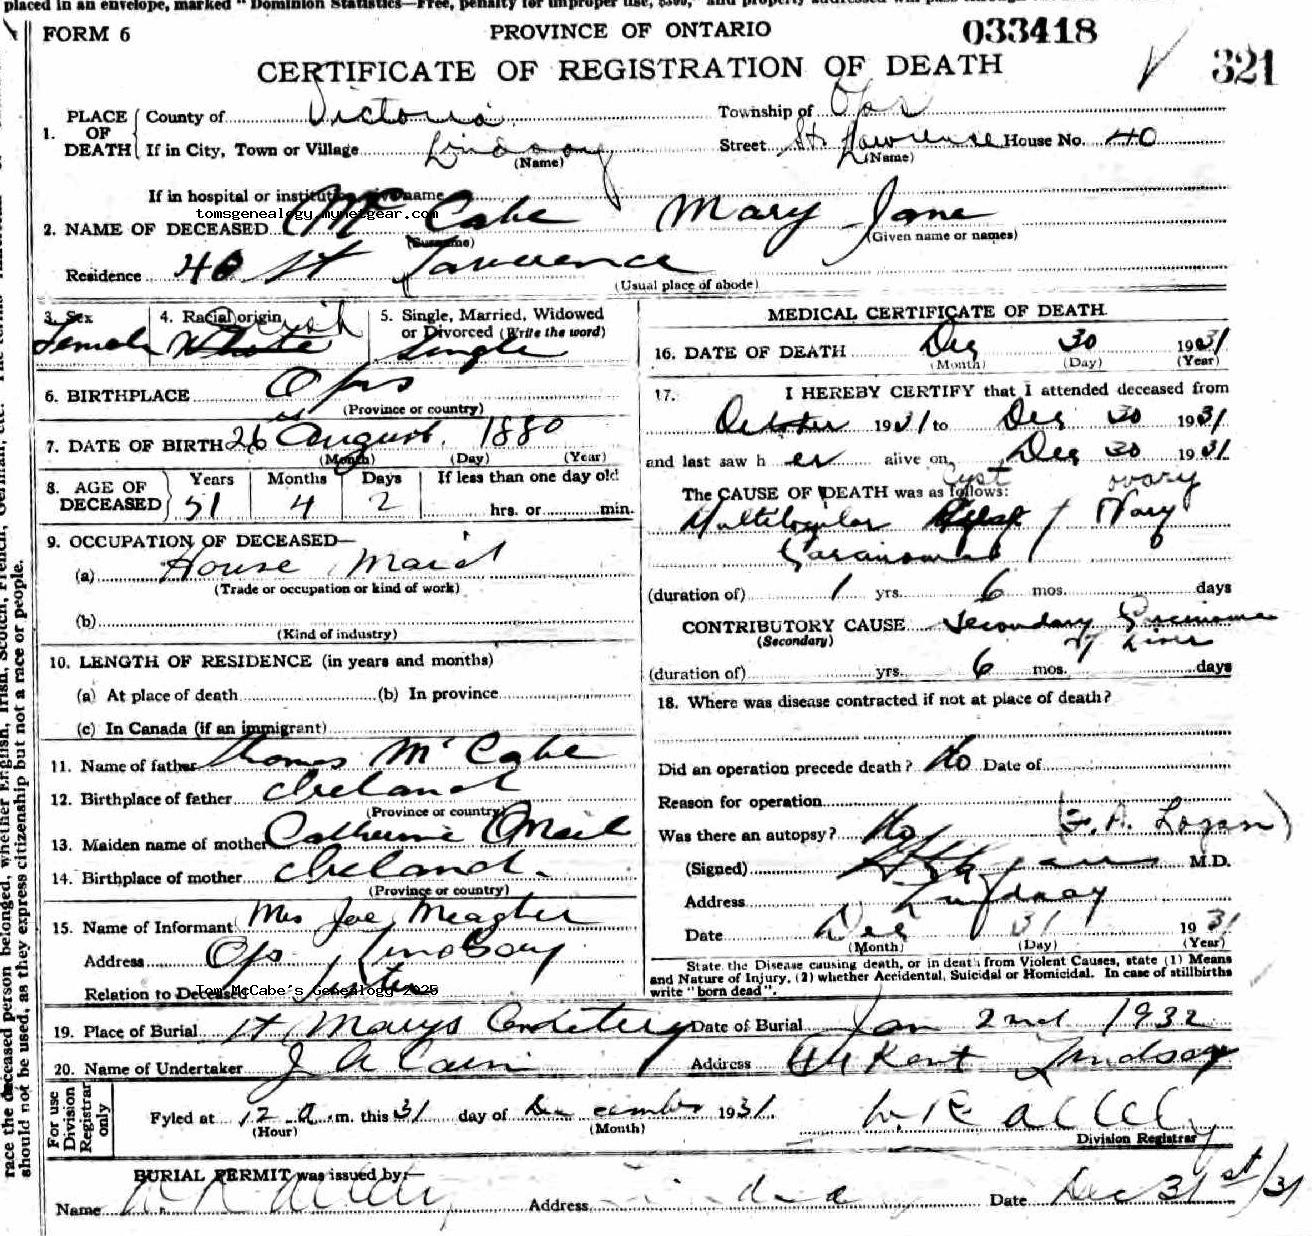 placed in an envelope, marked "Dominion Statistics—Free, penalty for improper use, $300,"
FORM 6 PROVINCE OF ONTARIO 033418
CERTIFICATE OF REGISTRATION OF DEATH 321
1. PLACE OF DEATH County of Victoria Township of Ops
If in City, Town or Village Lindsay (Name) Street St Lawrence (Name) House No. 40
If in hospital or institution, give name
tomsgenealogy.mynetgear.com
2. NAME OF DECEASED McCabe (Surname) Mary Jane (Given name or names)
Residence 40 St Lawrence (Usual place of abode)
3. Sex Female 4. Racial origin White Irish 5. Single, Married, Widowed or Divorced (Write the word) Single
6. BIRTHPLACE Ops (Province or country)
7. DATE OF BIRTH 26 August 1880 (Month) (Day) (Year)
8. AGE OF DECEASED Years 51 Months 4 Days 2 If less than one day old hrs. or min.
9. OCCUPATION OF DECEASED—
(a) House Maid (Trade or occupation or kind of work)
(b) (Kind of industry)
10. LENGTH OF RESIDENCE (in years and months)
(a) At place of death (b) In province
(c) In Canada (if an immigrant)
11. Name of father Thomas McCabe
12. Birthplace of father Ireland (Province or country)
13. Maiden name of mother Catherine O'Neil
14. Birthplace of mother Ireland. (Province or country)
15. Name of Informant Mrs Joe Meagher
Address Ops Lindsay
Relation to Deceased Sister
Tom McCabe's Genealogy 2025
MEDICAL CERTIFICATE OF DEATH
16. DATE OF DEATH Dec 30 1931 (Month) (Day) (Year)
17. I HEREBY CERTIFY that I attended deceased from
October 1931 to Dec 30 1931
and last saw her alive on Dec 30 1931.
The CAUSE OF DEATH was as follows:
Cyst ovary
Multilocular
Carcinoma
(duration of) 1 yrs. 6 mos. days
CONTRIBUTORY CAUSE (Secondary) Secondary Carcinoma of Liver
(duration of) yrs. 6 mos. days
18. Where was disease contracted if not at place of death?
Did an operation precede death? No Date of
Reason for operation
Was there an autopsy? No (F. A. Logan)
(Signed) M.D.
Address Lindsay
Date Dec 31 1931 (Month) (Day) (Year)
State the Disease causing death, or in death from Violent Causes, state (1) Means
and Nature of Injury, (2) whether Accidental, Suicidal or Homicidal. In case of stillbirths
write "born dead".
19. Place of Burial St Marys Cemetery Date of Burial Jan 2nd 1932
20. Name of Undertaker J A Cain Address Kent Lindsay
For use Division Registrar only
Fyled at 12 a.m. this 31 day of December 1931. (Hour) (Month)
Division Registrar
BURIAL PERMIT was issued by:—
Name Address Date Dec 31st/31
race the deceased person belonged, whether English, Irish, Scotch, French, German, etc.
should not be used, as they express citizenship but not a race or people.